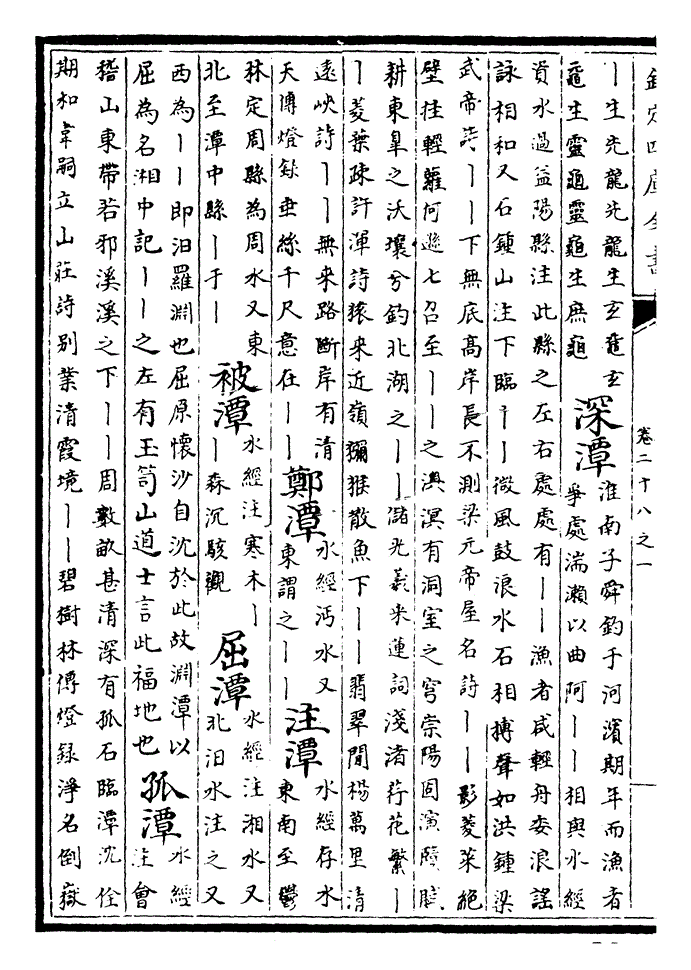 欽定四庫全書
卷二十八之一
丨生先龍先龍生玄黿玄
黿生靈龜靈龜生庶龜
深潭
淮南子舜釣于河濱期年而漁者
爭處湍瀨以曲阿丨丨相與水經
資水過益陽縣注此縣之左右處處有丨丨漁者咸輕舟委浪謠
詠相和又石鍾山注下臨丨丨微風鼓浪水石相搏聲如洪鍾梁
武帝詩丨丨下無底高岸長不測梁元帝屋名詩丨丨影菱菜絕
壁挂輕蘿何遜七召至丨丨之澳溟有洞室之穹崇陽固演賾賦
耕東臯之沃壤兮釣北湖之丨丨儲光羲采蓮詞淺渚荇花繁丨
丨菱葉疎許渾詩猿來近嶺獼猴散魚下丨丨翡翠閒楊萬里清
遠峽詩丨丨無來路斷岸有清
天傳燈錄垂絲千尺意在丨丨
鄭潭
水經沔水又
東謂之丨丨
注潭
水經存水
東南至鬱
林定周縣為周水又東
北至潭中縣丨于丨
被潭
水經注寒木丨
丨森沉駭觀
屈潭
水經注湘水又
北汨水注之又
西為丨丨即汨羅淵也屈原懷沙自沈於此故淵潭以
屈為名湘中記丨丨之左有玉笥山道士言此福地也
孤潭
水經
注會
稽山東帶若邪溪溪之下丨丨周數畝甚清深有孤石臨潭沈佺
期和韋嗣立山莊詩別業清霞境丨丨碧樹林傳燈錄淨名倒嶽